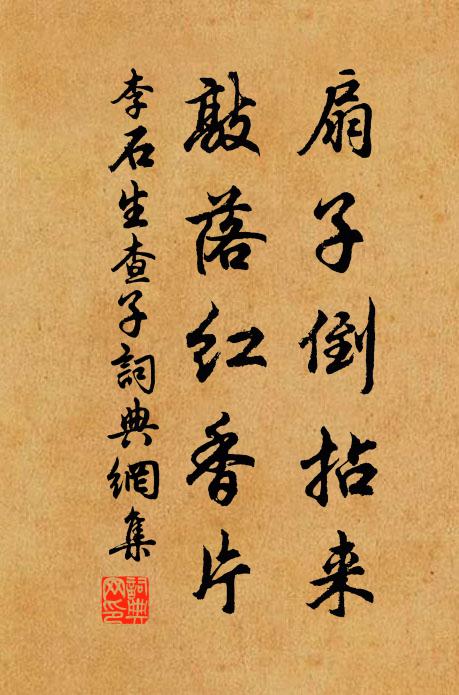 扇子倒拈来
敲落红香片
李石生查子詞典網集
詞典网印